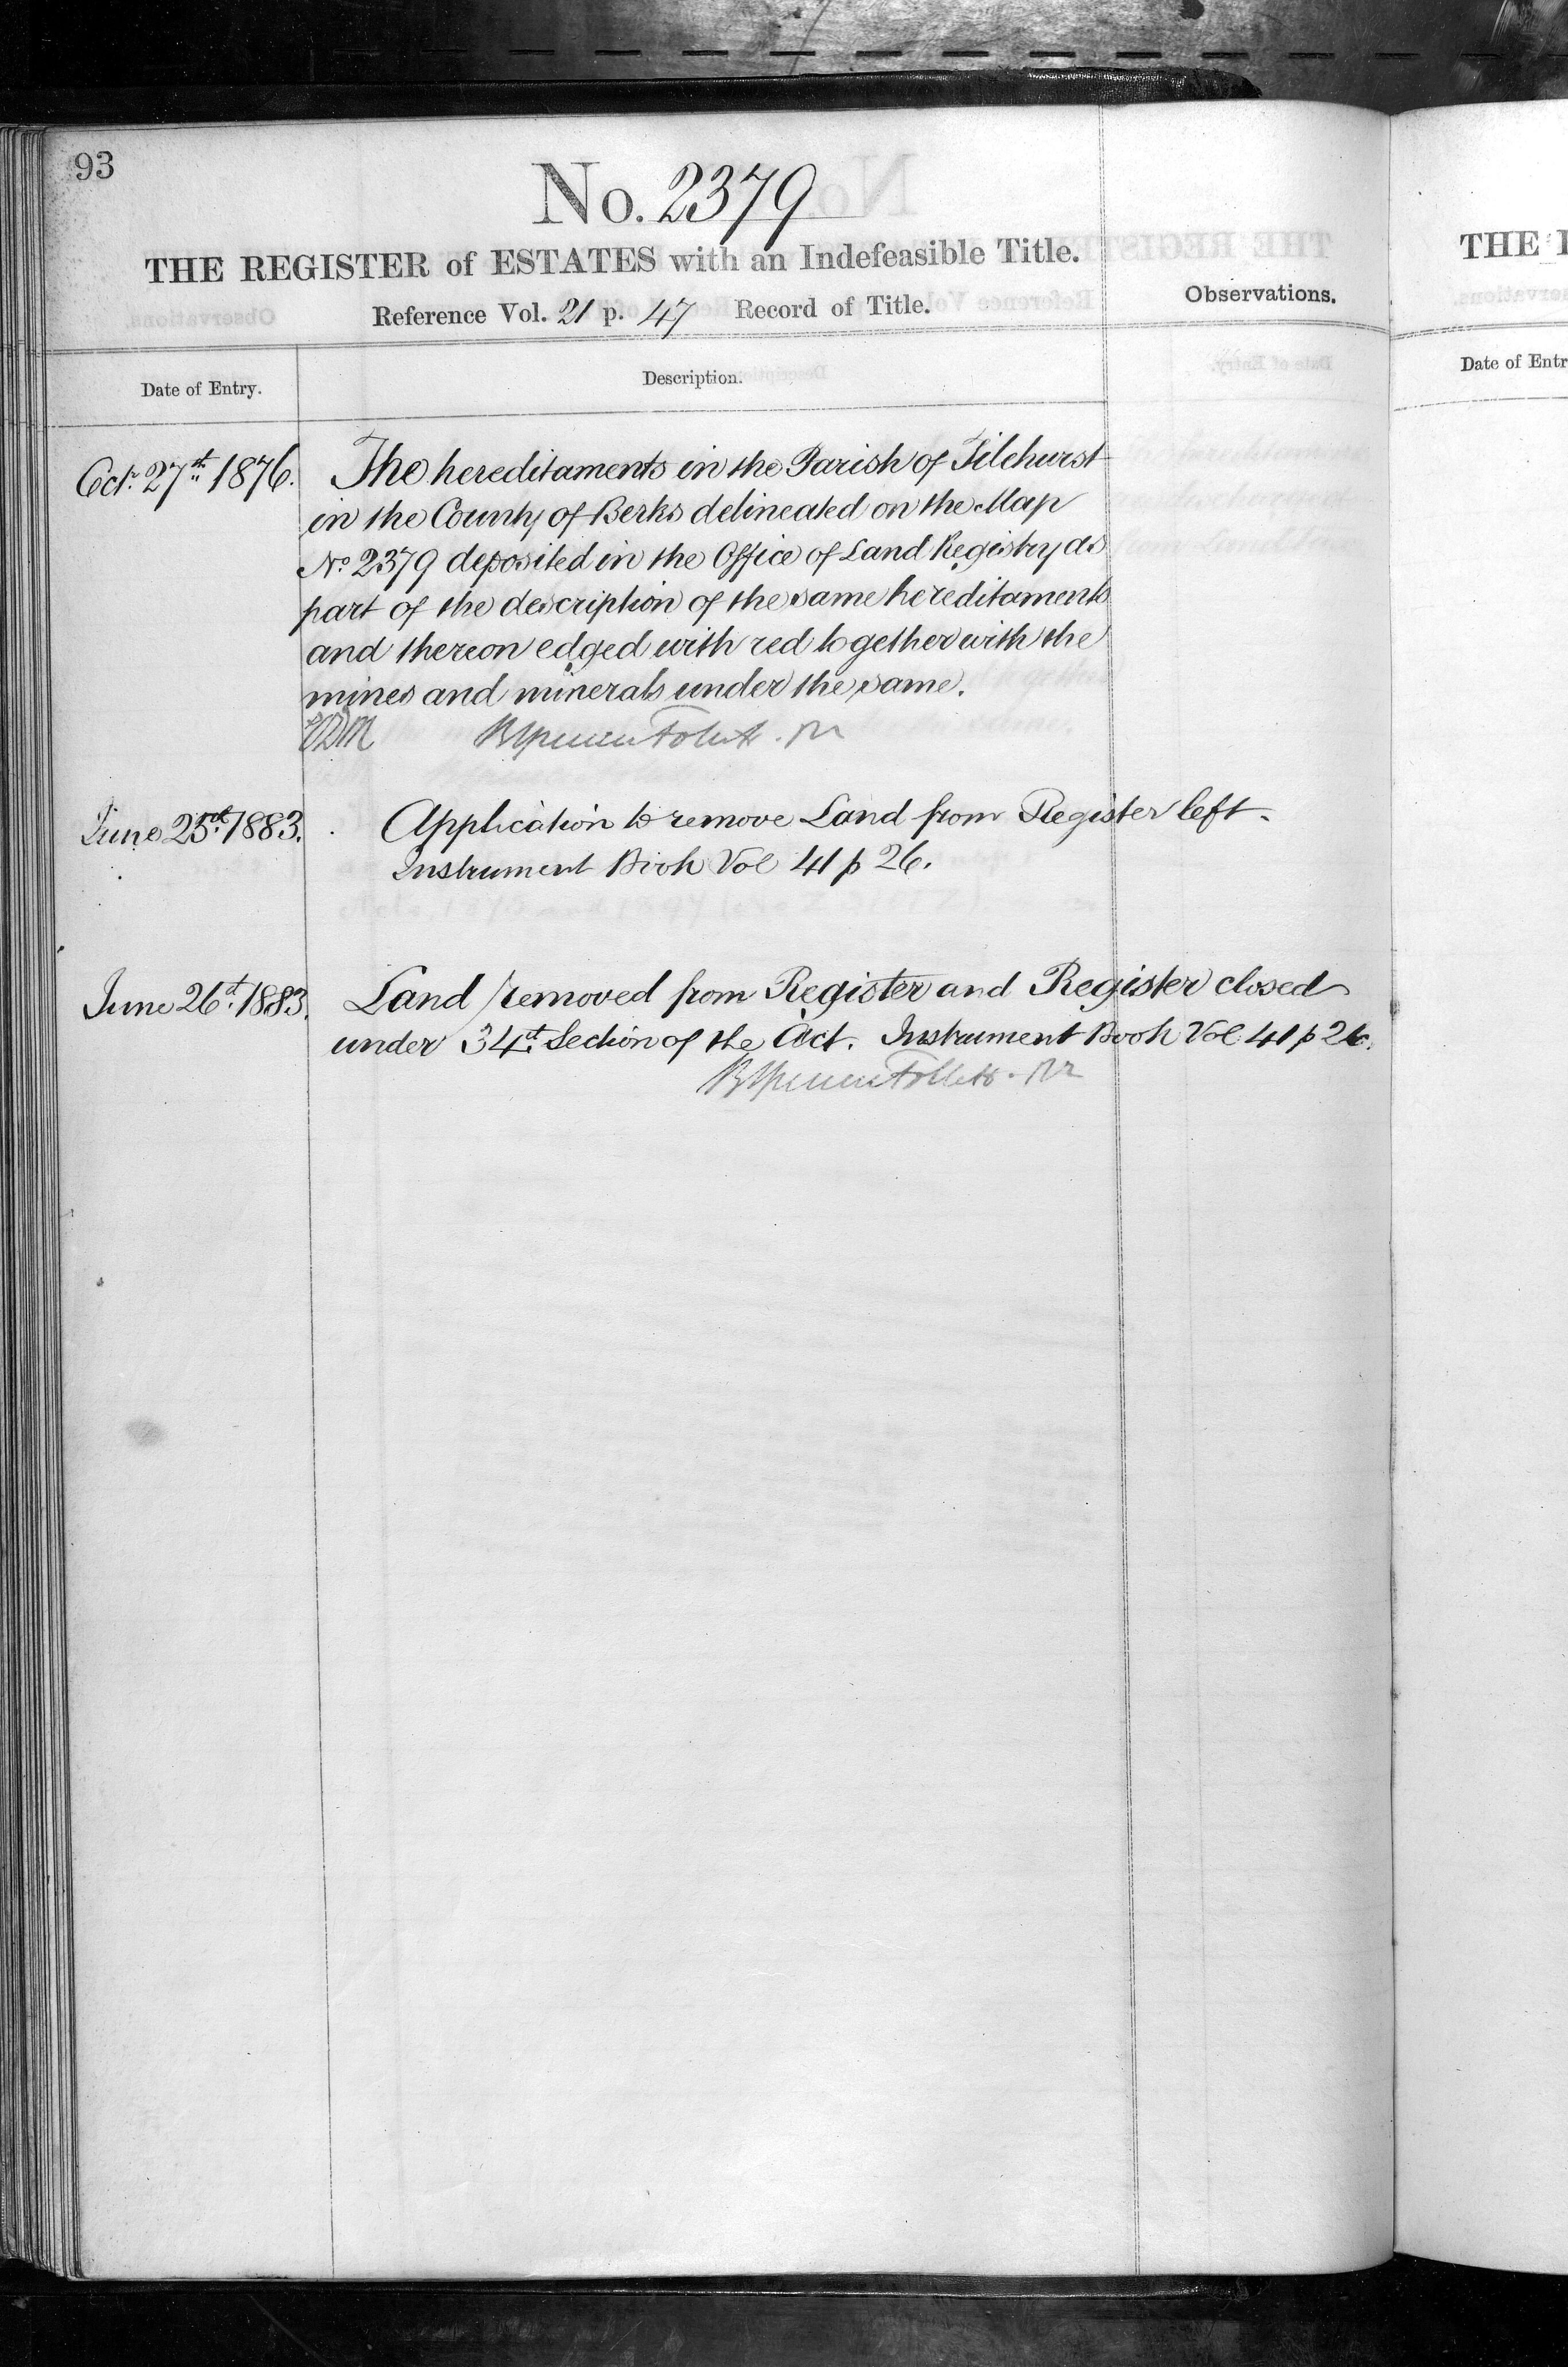 93
No. 2379
THE REGISTER of ESTATES with an Indefeasible Title.
Reference Vol. 21 p. 47 Record of Title.
Observations.
Date of Entry.
Description.
Oct. 27th 1876.
The hereditaments in the Parish of Tilehurst
in the County of Berks delineated on the Map
No 2379 deposited in the Office of Land Registry as
part of the description of the same hereditaments
and thereon edged with red together with the
mines and minerals under the same.
Follett
June 1883.
Application to remove Land from Register left.
Instrument Book Vol 41 p 26.
June 26th 1883.
Land removed from Register and Register closed
under 34th Section of the Act. Instrument Book Vol. 41 p 26.
Follett
THE
Date of Entr